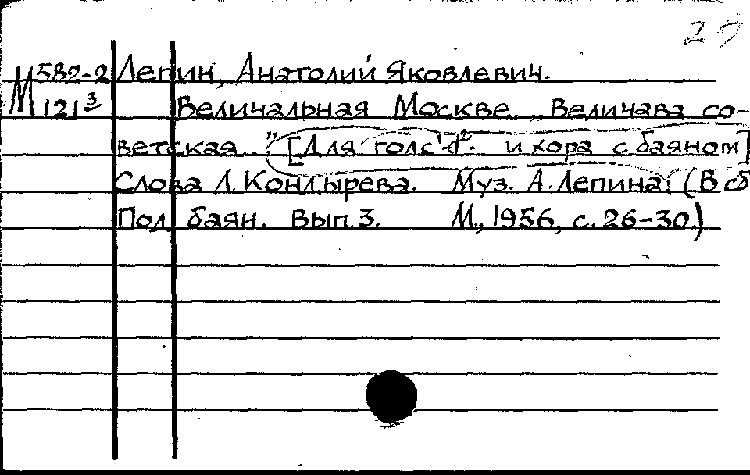 29
М 582-2 Лепин, Анатолий Яковлевич.
М 121 3 Величальная Москве. „Величава со-
ветская..." [Для голоса и хора с баяном]
Слова Л. Кондырева. Муз. А. Лепина. (В сб
Под баян. Вып. 3. М., 1956, с. 26-30.)